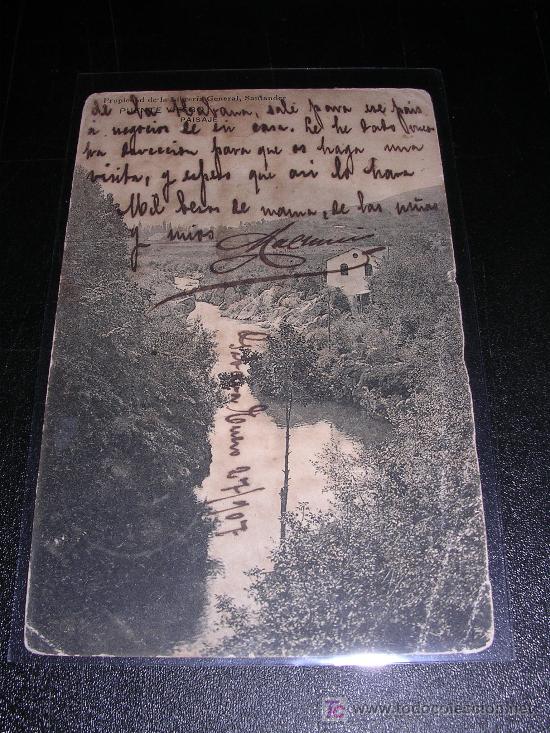 Propiedad de la Librería General, Santander
PUENTE VIESGO
PAISAJE
de la Habana, salé para ese país
a negocios de en casa. Le he dado vues
tra dirección para que os haga una
visita, y espero que asi lo hara
Mil besos de mama, de las niñas
y mios
27/907
TC www.todocoleccion.net